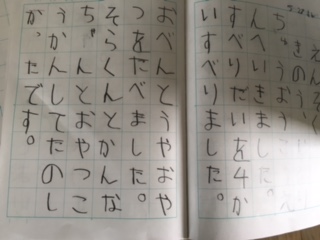 んちへいきました。
すべりだいを4か
いすべりました。
おべんとうやおや
つをたべました。
そらくんとかんな
ちゃんとおやつこ
うかんしてたのし
かったです。